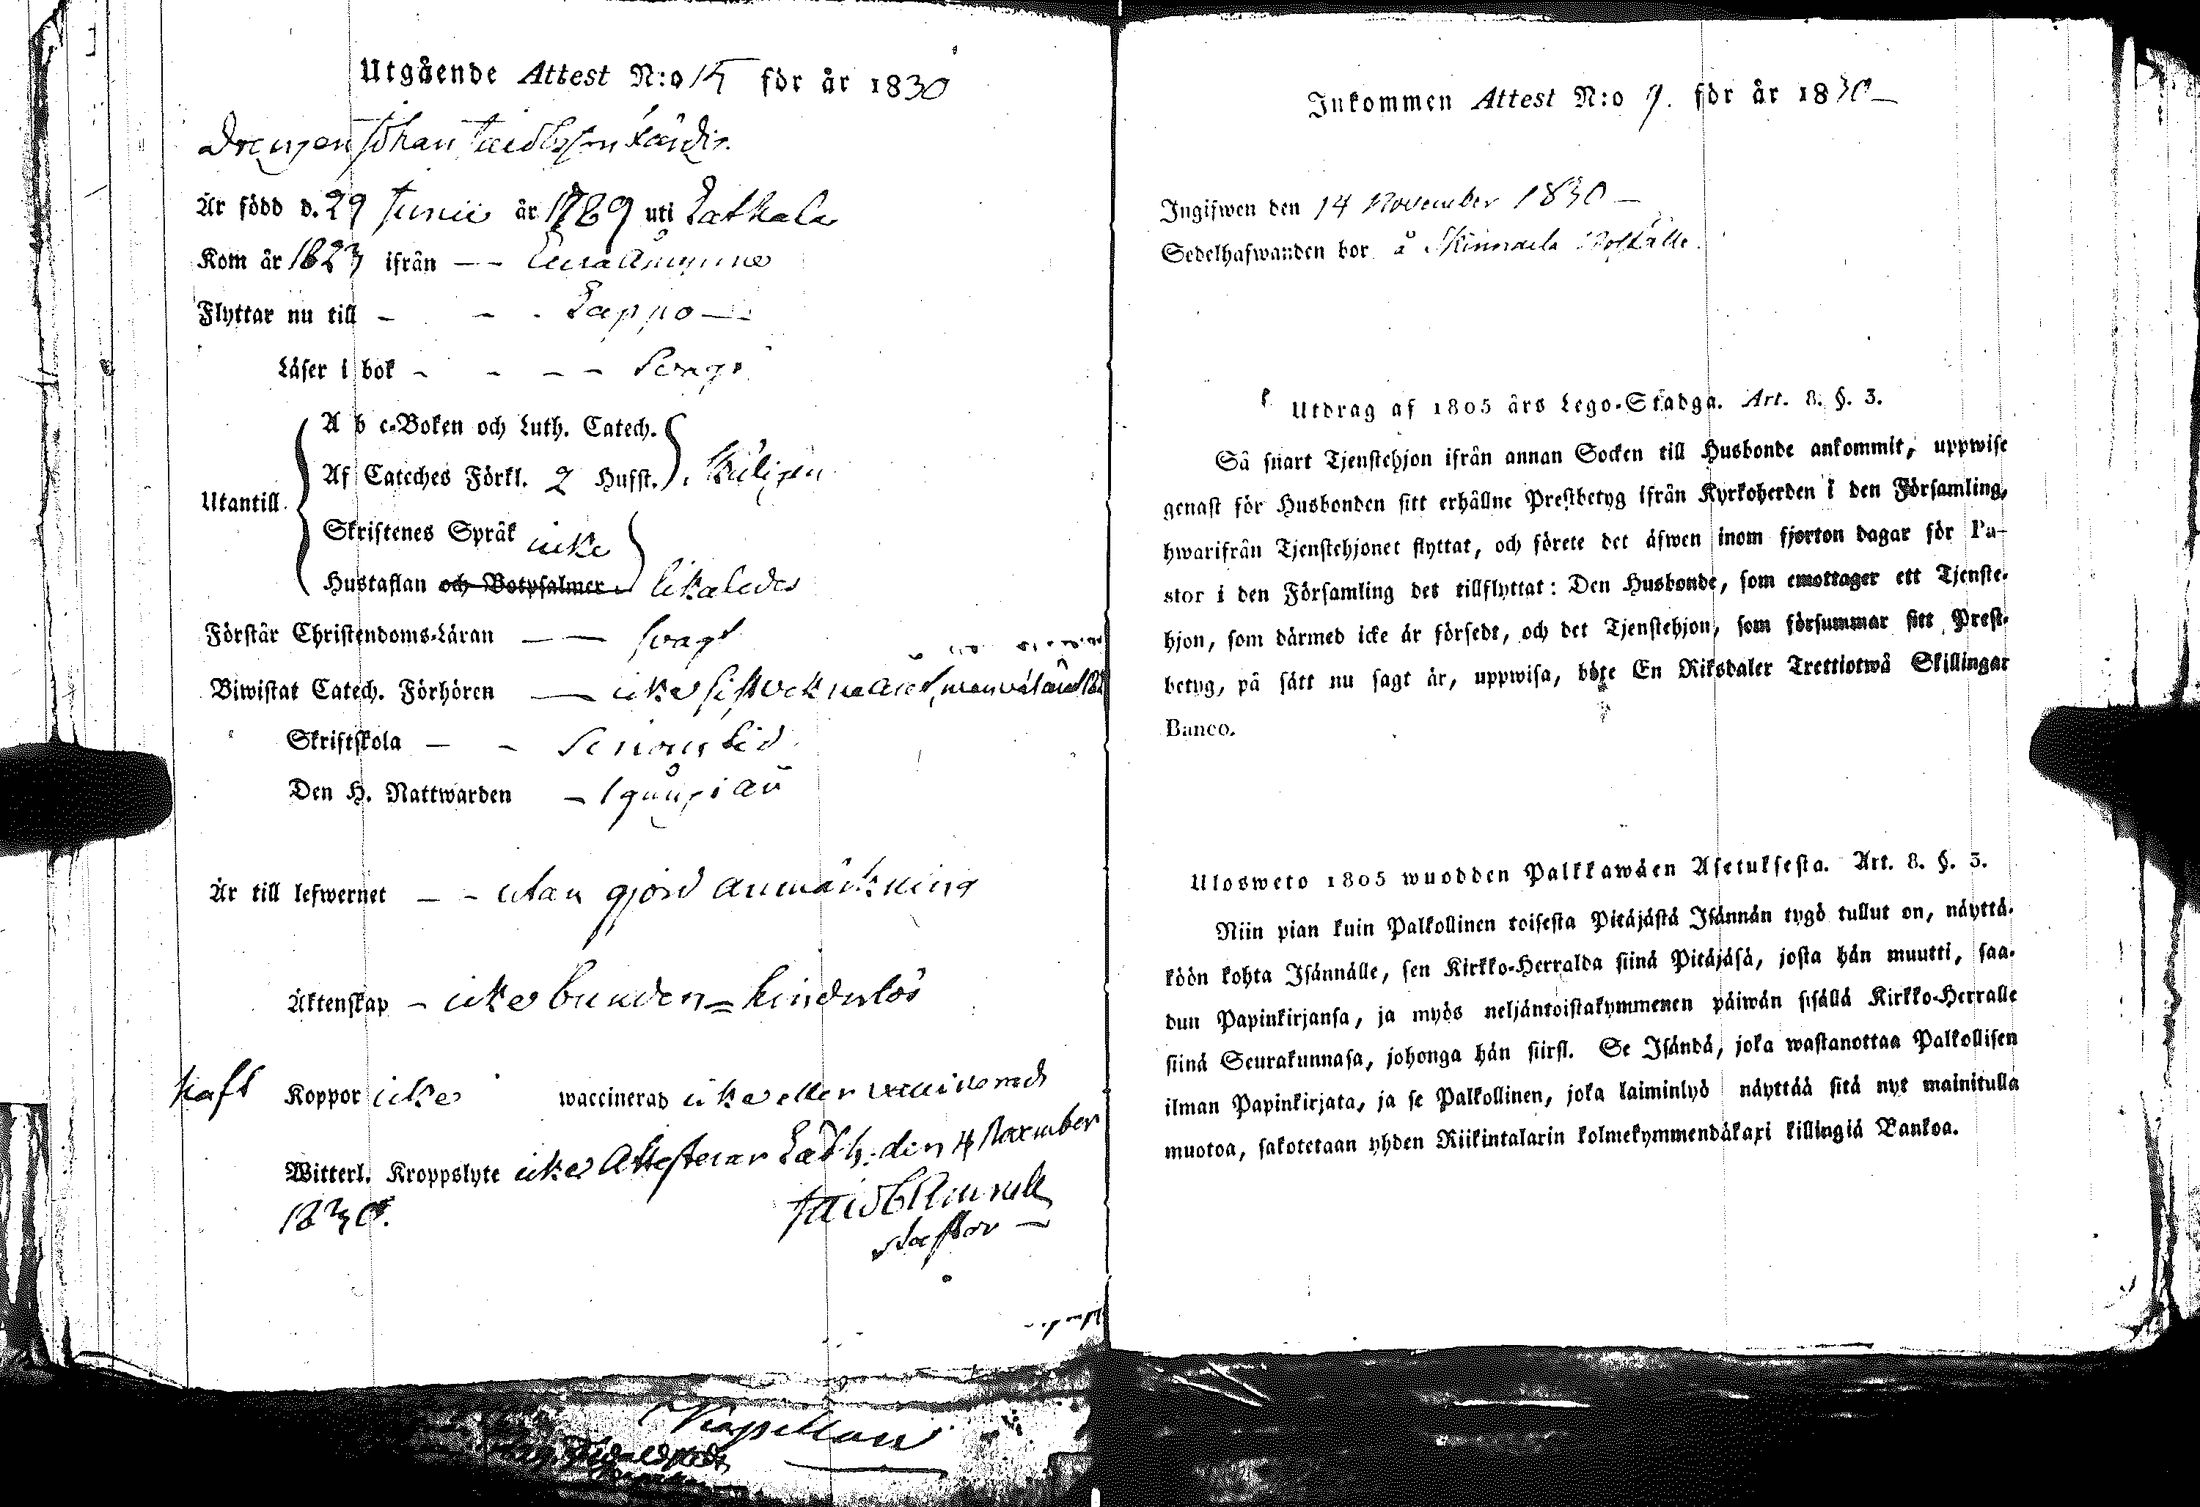 Utgående Attest N:o 15 för år 1830
Drengen Johan Jacobsson
Är född d. 29 Junii år 1789 uti Laihela
Kom år 1823 ifrån — —
Flyttar nu till - - - Lappo —
Läser i bok - - - - Svagt
A b c-Boken och Luth. Catech.
Af Cateches Förkl. 2 Hufst. Skäligen
Utantill
Skriftenes Språk icke
Hustaflan och Botpsalmer likaledes
Förstår Christendoms-Läran — — svagt
Biwistat Catech. Förhören — icke sistvekne året, men
Skriftskola — - i sinom tid
Den H. Nattwarden —
Är till lefwernet — - utan gjord anmärkning
Äktenskap - icke bunden = hinderlös
haft Koppor icke waccinerad icke eller vaccinerad
Witterl. Kroppslyte icke Attesterar Laih. den 4 November
1830.
Jacob
Pastor —
Kapellan
Inkommen Attest N:o 9. för år 1830 —
Ingifwen den 14 November 1830 —
Sedelhafwanden bor å Skinnarla Bolställe.
Utdrag af 1805 års Lego-Stadga. Art. 8. §. 3.
Så snart Tjenstehjon ifrån annan Socken till Husbonde ankommit, uppwise
genast för Husbonden sitt erhållne Prestbetyg ifrån Kyrkoherden i den Församling,
hwarifrån Tjenstehjonet flyttat, och förete det äfwen inom fjorton dagar för Pa-
stor i den Församling det tillflyttat: Den Husbonde, som emottager ett Tjenste-
hjon, som därmed icke är försedt, och det Tjenstehjon, som försummar sitt Prest-
betyg, på sätt nu sagt är, uppwisa, böte En Riksdaler Trettiotwå Skillingar
Banco.
Ulosweto 1805 wuodden Palkkawäen Asetuksesta. Art. 8. §. 3.
Niin pian kuin Palkollinen toisesta Pitäjästä Isännän tygö tullut on, näyttä-
köön kohta Isännälle, sen Kirkko-Herralda siinä Pitäjäsä, josta hän muutti, saa-
dun Papinkirjansa, ja myös neljäntoistakymmenen päiwän sisällä Kirkko-Herralle
siinä Seurakunnasa, johonga hän siirsi. Se Isändä, joka wastanottaa Palkollisen
ilman Papinkirjata, ja se Palkollinen, joka laiminlyö näyttää sitä nyt mainitulla
muotoa, sakotetaan yhden Riikintalarin kolmekymmendäkaxi killingiä Bankoa.